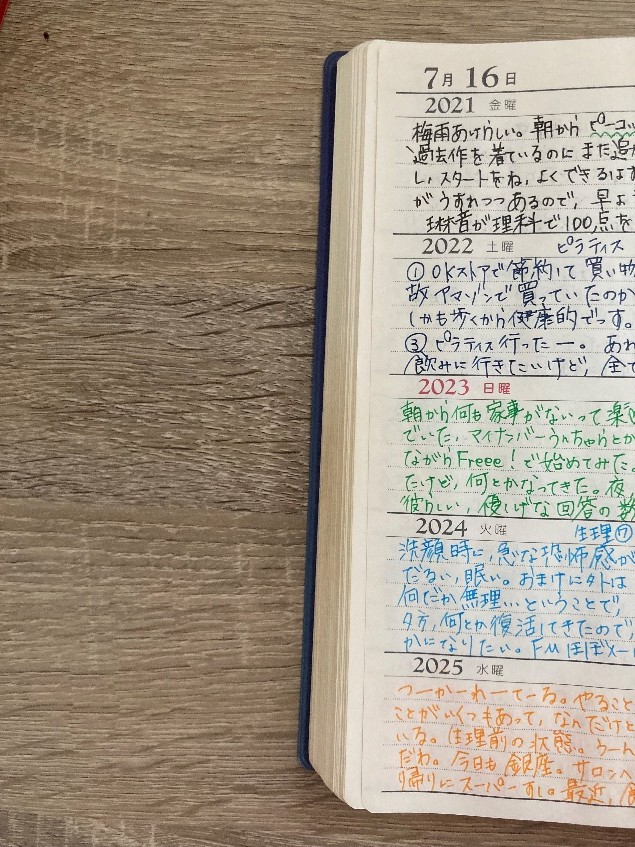 7月16日
2021 金曜
梅雨あけらしい。朝から ピーコッ
過去作を着ているのに また追か
し、スタートをね、よくできるはす
がうすれつつあるので、早よ
琳音が理科で100点を
2022 土曜 ピラティス
① OKストアで節約して買い物
故アマゾンで買っていたのか
しかも歩くから健康的でっす。
③ ピラティス行ったー。あれ
飲みに行きたいけど、全て
2023 日曜
朝から何も家事がないって楽
でいた。マイナンバーうんちゃらとか
ながらFreee!ど始めてみた。
たけど、何とかなってきた。夜
彼らしい、優しげな回答の数
2024 火曜 生理⑦
洗顔時に、急な恐怖感が
だるい、眠い。おまけに外は
何だか無理ぃということで、
夕方、何とか復活してきたので
かになりたい。FMほぼメー
2025 水曜
つーかーれーてーる。やること
ことがいくつもあって、なんだけど
いる。生理前の状態。うーん
だわ。今日も銀座。サロンへ
帰りにスーパーすし。最近、